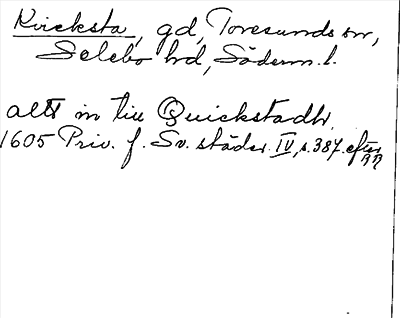 Kvicksta, gd, Toresunds sn,
Selebo hd, Söderm. l.
allt in till Quickstadh,
1605 Priv. f. Sv. städer. IV, s. 387. efter